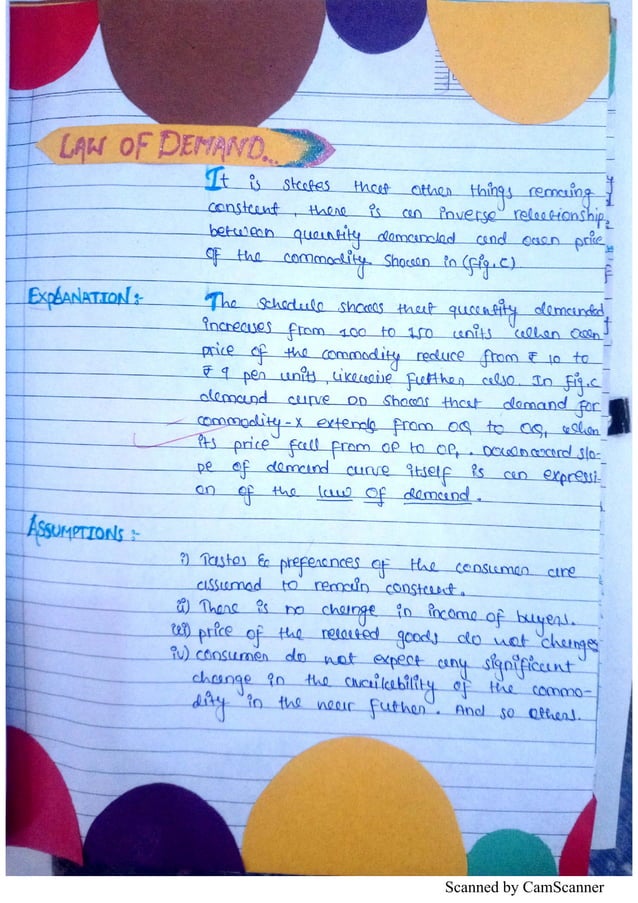 LAW OF DEMAND...
It is states that other things remaining
constant, there is an inverse relationship
between quantity demanded and own price
of the commodity. Shown in (fig.C)
EXPLANATION:-
The schedule shows that quantity demanded
increases from 100 to 150 units when own
price of the commodity reduce from ₹ 10 to
₹ 9 per units, likewise further also. In fig.c
demand curve DD shows that demand for
commodity-x extends from OQ to OQ, when
its price fall from OP to OP, . Downward slo-
pe of demand curve itself is an expressi-
on of the law of demand.
ASSUMPTIONS:-
i) Tastes & preferences of the consumer are
assumed to remain constant.
ii) There is no change in income of buyers.
iii) price of the related goods do not changes
iv) consumer do not expect any significant
change in the availability of the commo-
dity in the near futher. And so others.
Scanned by CamScanner